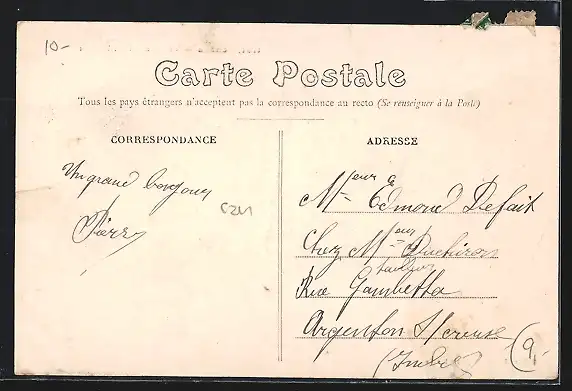 10-
Carte Postale
Tous les pays étrangers n'acceptent pas la correspondance au recto (Se renseigner à la Poste)
CORRESPONDANCE
ADRESSE
Un grand bonjour
Pierre
Mieur Edmond Defait
Chez Mieur Duchiron
tailleur
Rue Gambetta
Argenton S/creuse
(Indre)
9,-